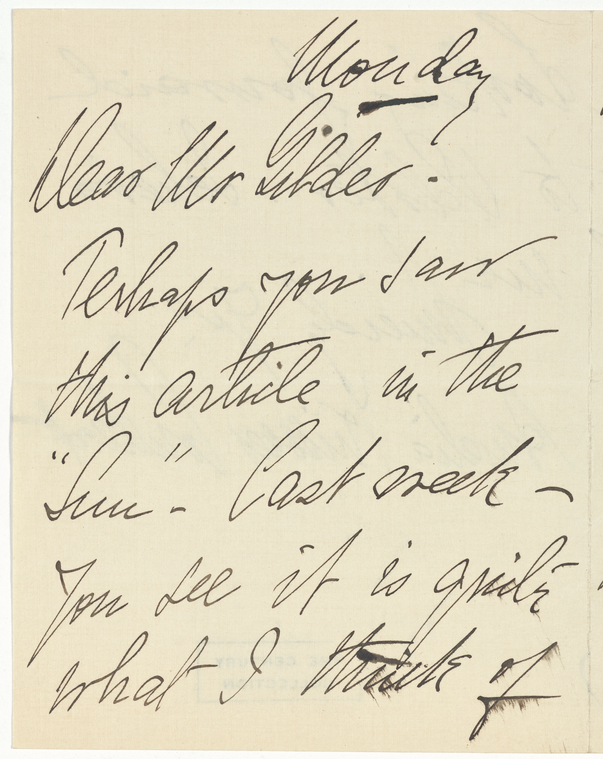 Monday
Dear Mr Gilder.
Perhaps you saw
this article in the
"Sun". Last week –
you see it is quite
what I think of